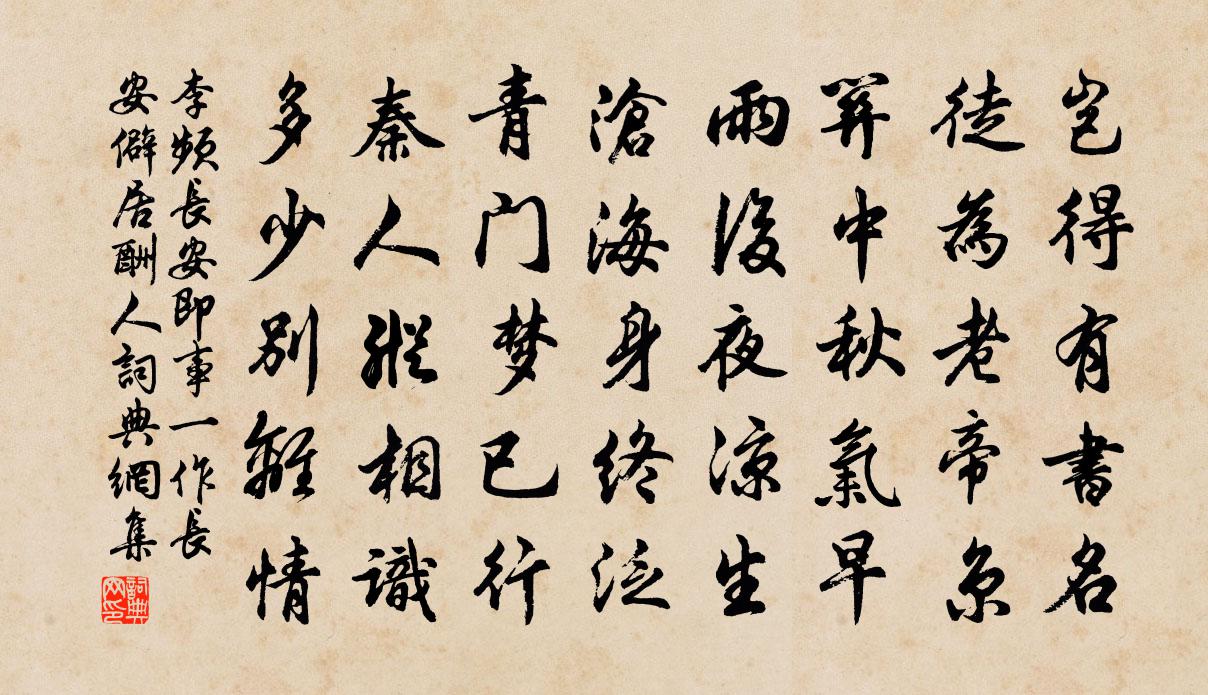 豈得有書名
徒為老帝京
關中秋氣早
雨後夜涼生
滄海身終泛
青门梦已行
秦人縱相識
多少別離情
李頻長安即事一作長
安僻居酬人詞典網集
詞典
网印